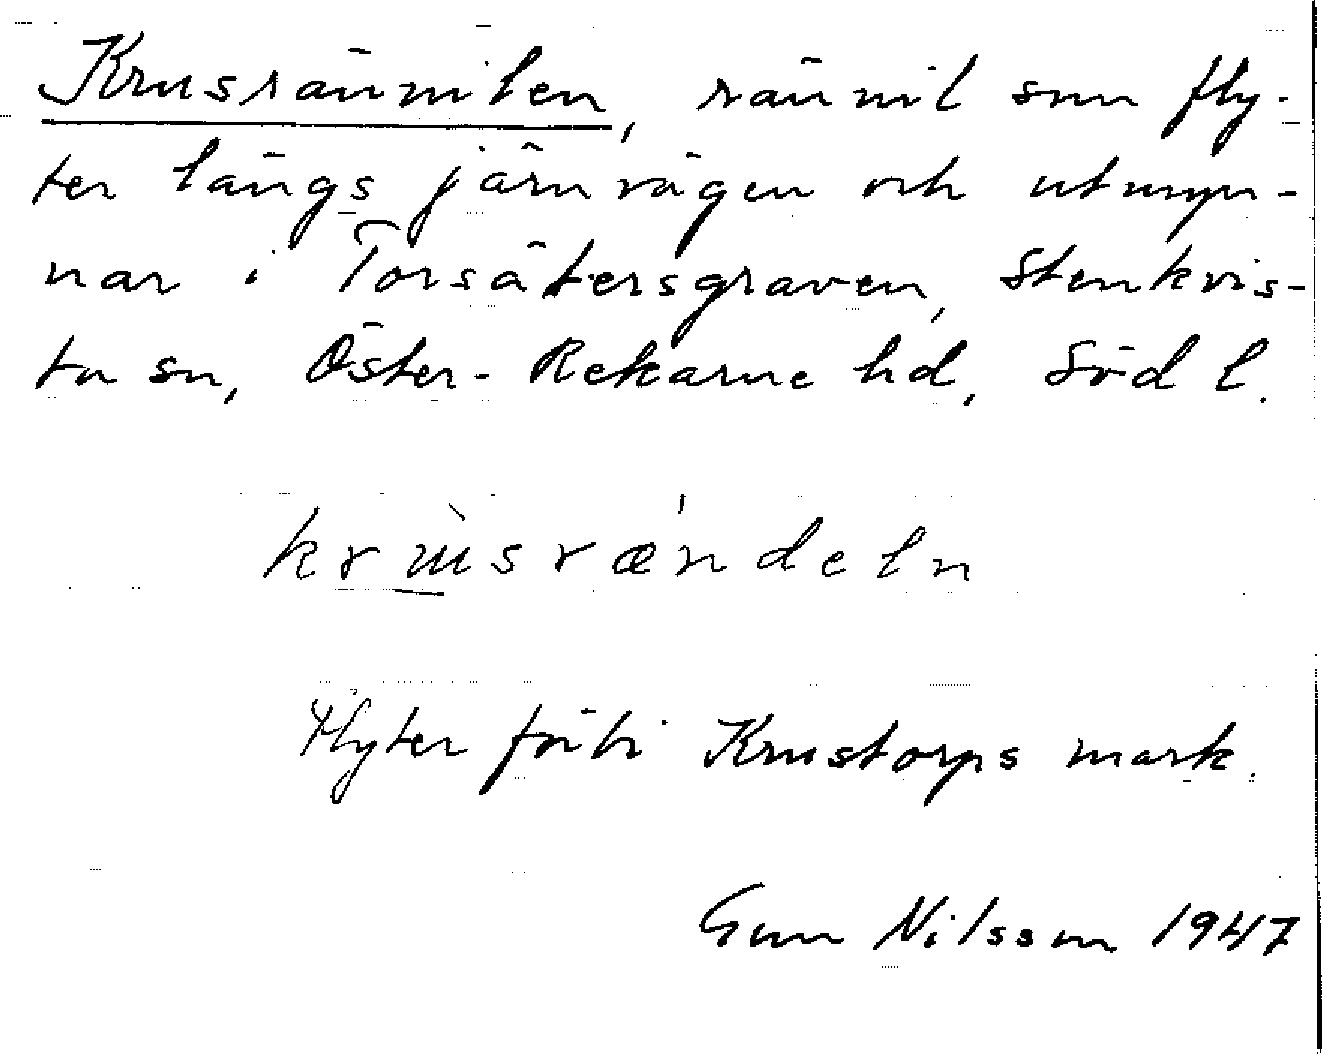 Krusrännilen, rännil som fly-
ter längs järnvägen och utmyn-
nar i Torsätersgraven, Stenkvis-
ta sn, Öster-Rekarne hd, Söd l.
krùsrændeln
Flyter förbi Krustorps mark.
Gun Nilsson 1947